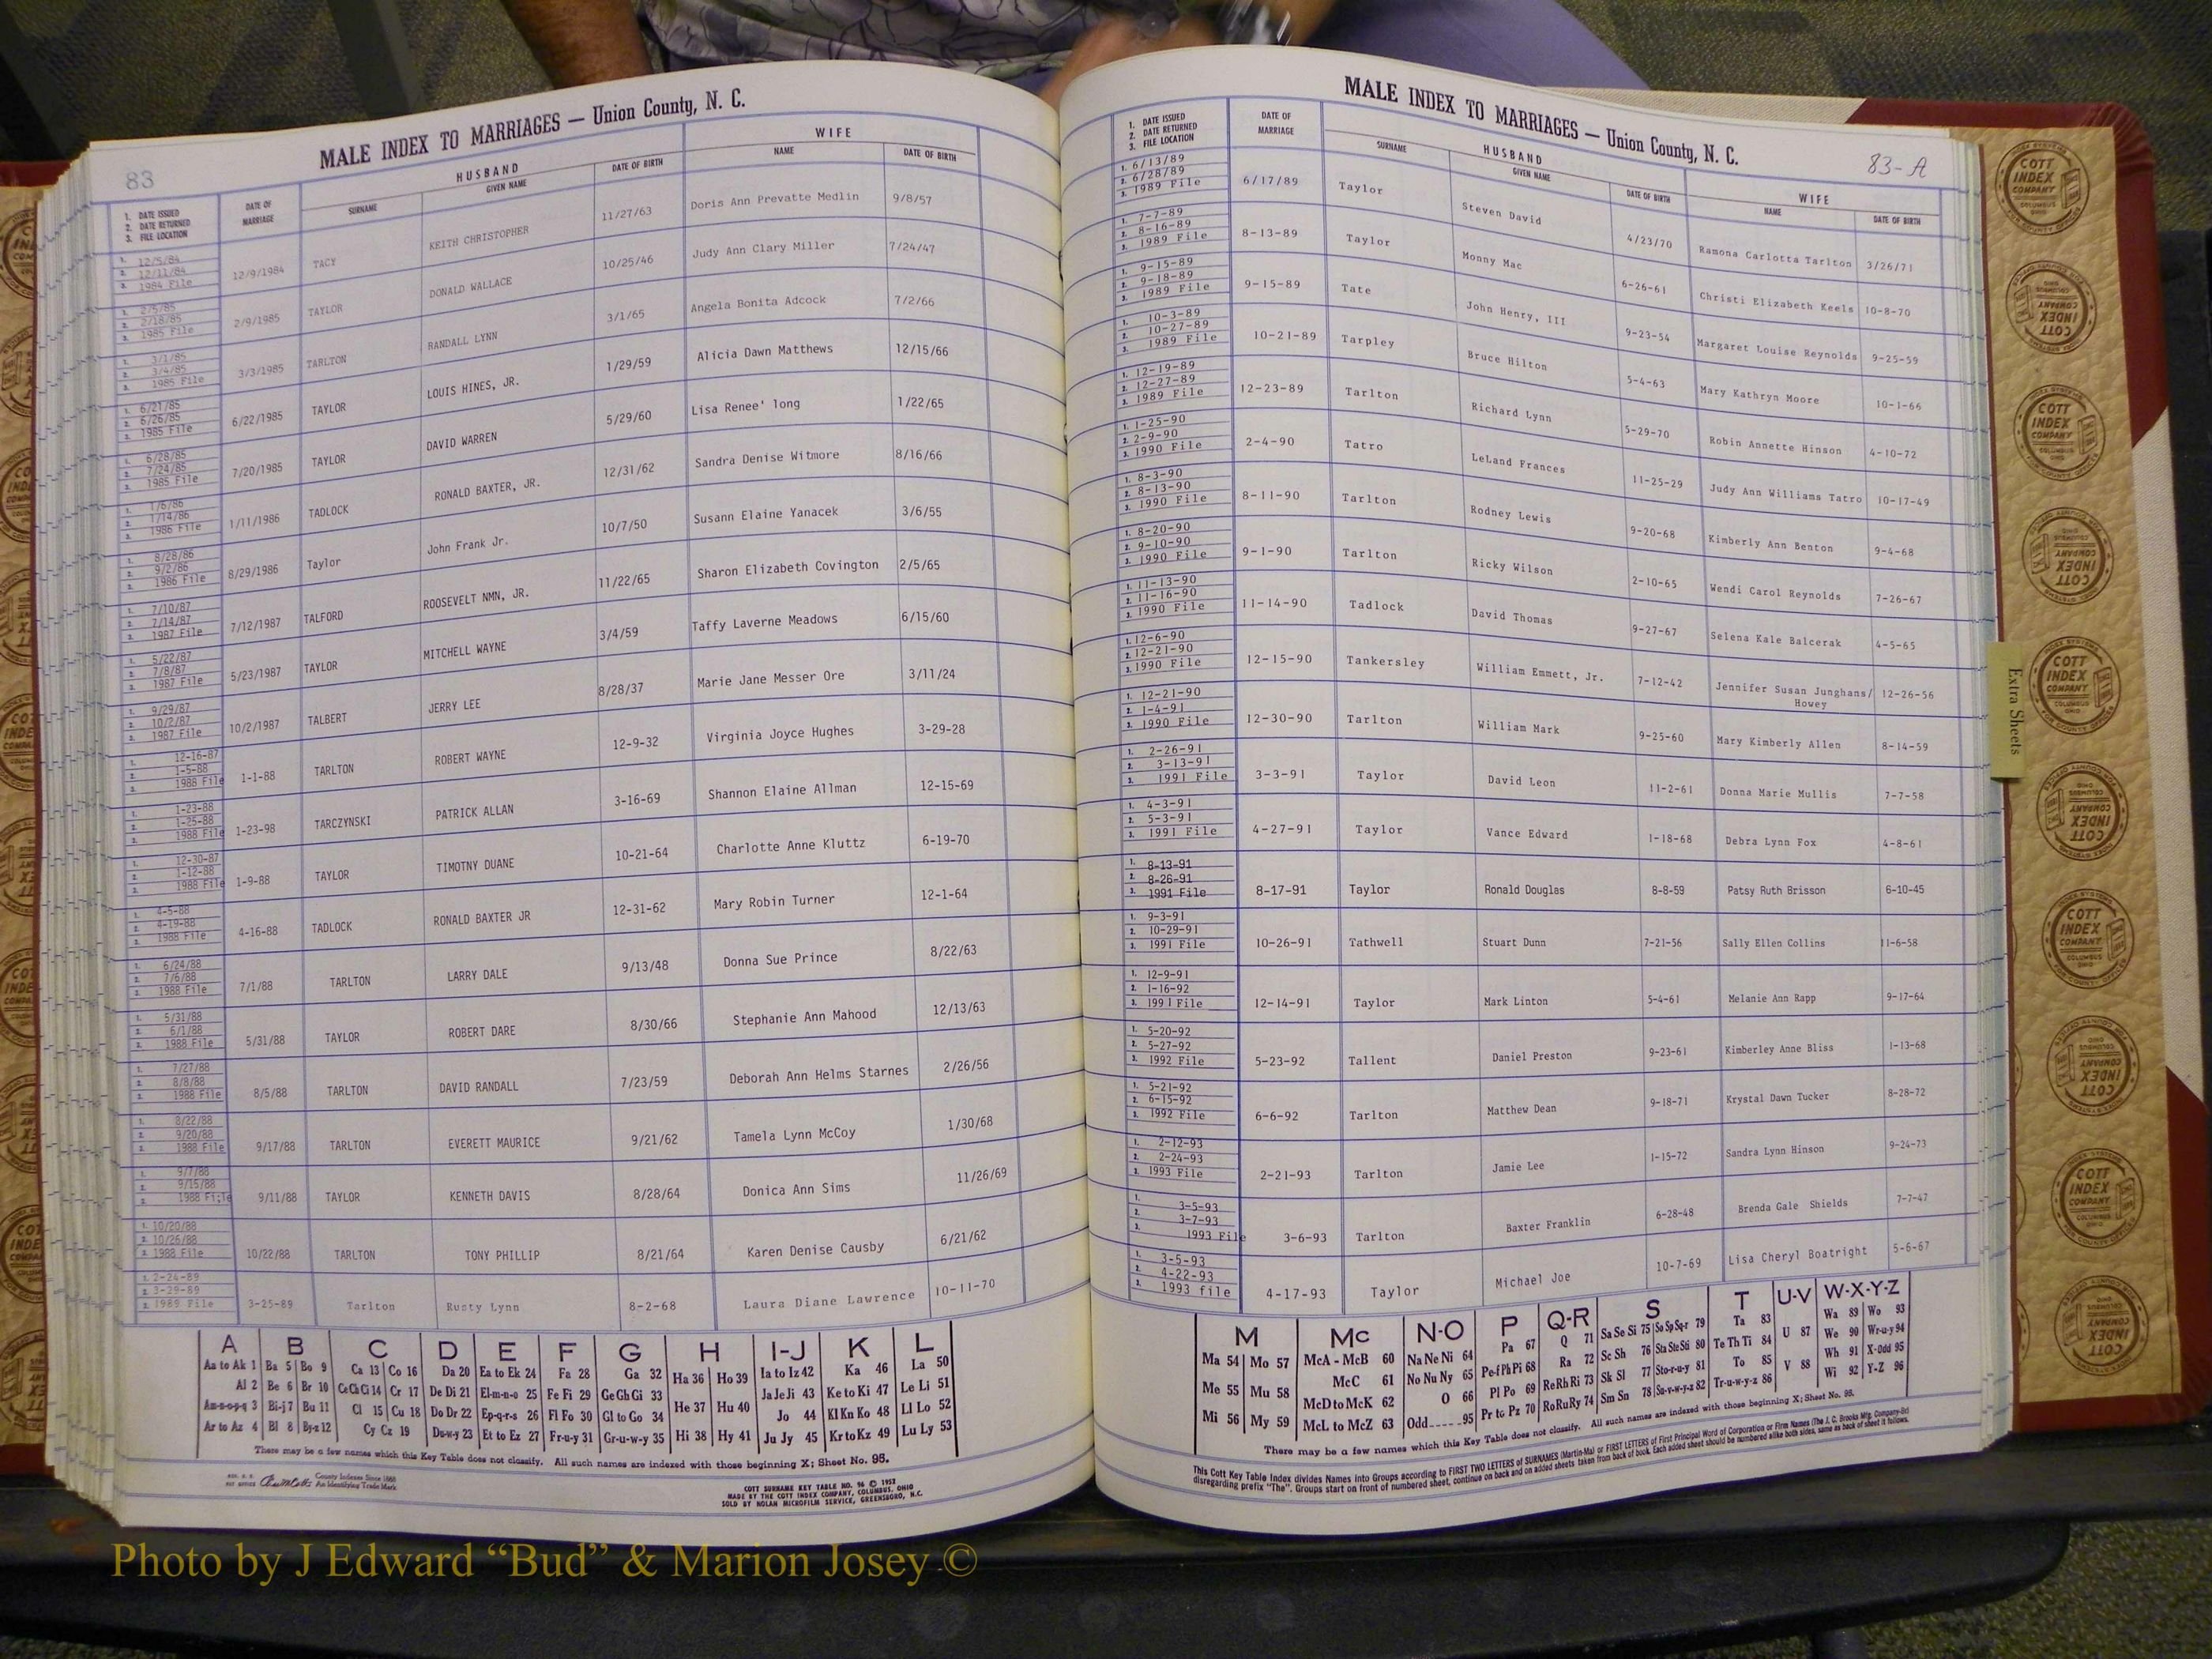 83
MALE INDEX TO MARRIAGES — Union County, N. C.
1. DATE ISSUED
2. DATE RETURNED
3. FILE LOCATION
DATE OF MARRIAGE
HUSBAND
SURNAME
GIVEN NAME
DATE OF BIRTH
WIFE
NAME
DATE OF BIRTH
1. 12/5/84 2. 12/11/84 3. 1984 File 12/9/1984 TACY KEITH CHRISTOPHER 11/27/63 Doris Ann Prevatte Medlin 9/8/57
1. 2/5/85 2. 2/18/85 3. 1985 File 2/9/1985 TAYLOR DONALD WALLACE 10/25/46 Judy Ann Clary Miller 7/24/47
1. 3/1/85 2. 3/4/85 3. 1985 File 3/3/1985 TARLTON RANDALL LYNN 3/1/65 Angela Bonita Adcock 7/2/66
1. 6/21/85 2. 6/26/85 3. 1985 File 6/22/1985 TAYLOR LOUIS HINES, JR. 1/29/59 Alicia Dawn Matthews 12/15/66
1. 6/28/85 2. 7/24/85 3. 1985 File 7/20/1985 TAYLOR DAVID WARREN 5/29/60 Lisa Renee' long 1/22/65
1. 1/6/86 2. 1/14/86 3. 1986 File 1/11/1986 TADLOCK RONALD BAXTER, JR. 12/31/62 Sandra Denise Witmore 8/16/66
1. 8/28/86 2. 9/2/86 3. 1986 File 8/29/1986 Taylor John Frank Jr. 10/7/50 Susann Elaine Yanacek 3/6/55
1. 7/10/87 2. 7/14/87 3. 1987 File 7/12/1987 TALFORD ROOSEVELT NMN, JR. 11/22/65 Sharon Elizabeth Covington 2/5/65
1. 5/22/87 2. 7/8/87 3. 1987 File 5/23/1987 TAYLOR MITCHELL WAYNE 3/4/59 Taffy Laverne Meadows 6/15/60
1. 9/29/87 2. 10/2/87 3. 1987 File 10/2/1987 TALBERT JERRY LEE 8/28/37 Marie Jane Messer Ore 3/11/24
1. 12-16-87 2. 1-5-88 3. 1988 File 1-1-88 TARLTON ROBERT WAYNE 12-9-32 Virginia Joyce Hughes 3-29-28
1. 1-23-88 2. 1-25-88 3. 1988 File 1-23-98 TARCZYNSKI PATRICK ALLAN 3-16-69 Shannon Elaine Allman 12-15-69
1. 12-30-87 2. 1-12-88 3. 1988 File 1-9-88 TAYLOR TIMOTNY DUANE 10-21-64 Charlotte Anne Kluttz 6-19-70
1. 4-5-88 2. 4-19-88 3. 1988 File 4-16-88 TADLOCK RONALD BAXTER JR 12-31-62 Mary Robin Turner 12-1-64
1. 6/24/88 2. 7/6/88 3. 1988 File 7/1/88 TARLTON LARRY DALE 9/13/48 Donna Sue Prince 8/22/63
1. 5/31/88 2. 6/1/88 3. 1988 File 5/31/88 TAYLOR ROBERT DARE 8/30/66 Stephanie Ann Mahood 12/13/63
1. 7/27/88 2. 8/8/88 3. 1988 File 8/5/88 TARLTON DAVID RANDALL 7/23/59 Deborah Ann Helms Starnes 2/26/56
1. 8/22/88 2. 9/20/88 3. 1988 File 9/17/88 TARLTON EVERETT MAURICE 9/21/62 Tamela Lynn McCoy 1/30/68
1. 9/7/88 2. 9/15/88 3. 1988 Fi;le 9/11/88 TAYLOR KENNETH DAVIS 8/28/64 Donica Ann Sims 11/26/69
1. 10/20/88 2. 10/26/88 3. 1988 File 10/22/88 TARLTON TONY PHILLIP 8/21/64 Karen Denise Causby 6/21/62
1. 2-24-89 2. 3-29-89 3. 1989 File 3-25-89 Tarlton Rusty Lynn 8-2-68 Laura Diane Lawrence 10-11-70
A B C D E F G H I-J K L
Aa to Ak 1 Ba 5 Bo 9 Ca 13 Co 16 Da 20 Ea to Ek 24 Fa 28 Ga 32 Ha 36 Ho 39 Ia to Iz 42 Ka 46 La 50
Al 2 Be 6 Br 10 Ce Ch Ci 14 Cr 17 De Di 21 El-m-n-o 25 Fe Fi 29 Ge Gh Gi 33 He 37 Hu 40 Ja Je Ji 43 Ke to Ki 47 Le Li 51
Am-n-o-p-q 3 Bi-j 7 Bu 11 Cl 15 Cu 18 Do Dr 22 Ep-q-r-s 26 Fl Fo 30 Gl to Go 34 Jo 44 Kl Kn Ko 48 Ll Lo 52
Ar to Az 4 Bl 8 By-z 12 Cy Cz 19 Du-w-y 23 Et to Ez 27 Fr-u-y 31 Gr-u-w-y 35 Hi 38 Hy 41 Ju Jy 45 Kr to Kz 49 Lu Ly 53
There may be a few names which this Key Table does not classify. All such names are indexed with those beginning X; Sheet No. 95.
County Indexes Since 1888
An Identifying Trade Mark
COTT SURNAME KEY TABLE NO. 96 © 1952
MADE BY THE COTT INDEX COMPANY, COLUMBUS, OHIO
SOLD BY NOLAN MICROFILM SERVICE, GREENSBORO, N.C.
MALE INDEX TO MARRIAGES — Union County, N. C.
83-A
1. DATE ISSUED
2. DATE RETURNED
3. FILE LOCATION
DATE OF MARRIAGE
HUSBAND
SURNAME
GIVEN NAME
DATE OF BIRTH
WIFE
NAME
DATE OF BIRTH
1. 6/13/89 2. 6/28/89 3. 1989 File 6/17/89 Taylor Steven David 4/23/70 Ramona Carlotta Tarlton 3/26/71
1. 7-7-89 2. 8-16-89 3. 1989 File 8-13-89 Taylor Monny Mac 6-26-61 Christi Elizabeth Keels 10-8-70
1. 9-15-89 2. 9-18-89 3. 1989 File 9-15-89 Tate John Henry, III 9-23-54 Margaret Louise Reynolds 9-25-59
1. 10-3-89 2. 10-27-89 3. 1989 File 10-21-89 Tarpley Bruce Hilton 5-4-63 Mary Kathryn Moore 10-1-66
1. 12-19-89 2. 12-27-89 3. 1989 File 12-23-89 Tarlton Richard Lynn 5-29-70 Robin Annette Hinson 4-10-72
1. 1-25-90 2. 2-9-90 3. 1990 File 2-4-90 Tatro LeLand Frances 11-25-29 Judy Ann Williams Tatro 10-17-49
1. 8-3-90 2. 8-13-90 3. 1990 File 8-11-90 Tarlton Rodney Lewis 9-20-68 Kimberly Ann Benton 9-4-68
1. 8-20-90 2. 9-10-90 3. 1990 File 9-1-90 Tarlton Ricky Wilson 2-10-65 Wendi Carol Reynolds 7-26-67
1. 11-13-90 2. 11-16-90 3. 1990 File 11-14-90 Tadlock David Thomas 9-27-67 Selena Kale Balcerak 4-5-65
1. 12-6-90 2. 12-21-90 3. 1990 File 12-15-90 Tankersley William Emmett, Jr. 7-12-42 Jennifer Susan Junghans/ Howey 12-26-56
1. 12-21-90 2. 1-4-91 3. 1990 File 12-30-90 Tarlton William Mark 9-25-60 Mary Kimberly Allen 8-14-59
1. 2-26-91 2. 3-13-91 3. 1991 File 3-3-91 Taylor David Leon 11-2-61 Donna Marie Mullis 7-7-58
1. 4-3-91 2. 5-3-91 3. 1991 File 4-27-91 Taylor Vance Edward 1-18-68 Debra Lynn Fox 4-8-61
1. 8-13-91 2. 8-26-91 3. 1991 File 8-17-91 Taylor Ronald Douglas 8-8-59 Patsy Ruth Brisson 6-10-45
1. 9-3-91 2. 10-29-91 3. 1991 File 10-26-91 Tathwell Stuart Dunn 7-21-56 Sally Ellen Collins 11-6-58
1. 12-9-91 2. 1-16-92 3. 1991 File 12-14-91 Taylor Mark Linton 5-4-61 Melanie Ann Rapp 9-17-64
1. 5-20-92 2. 5-27-92 3. 1992 File 5-23-92 Tallent Daniel Preston 9-23-61 Kimberley Anne Bliss 1-13-68
1. 5-21-92 2. 6-15-92 3. 1992 File 6-6-92 Tarlton Matthew Dean 9-18-71 Krystal Dawn Tucker 8-28-72
1. 2-12-93 2. 2-24-93 3. 1993 File 2-21-93 Tarlton Jamie Lee 1-15-72 Sandra Lynn Hinson 9-24-73
1. 3-5-93 2. 3-7-93 3. 1993 File 3-6-93 Tarlton Baxter Franklin 6-28-48 Brenda Gale Shields 7-7-47
1. 3-5-93 2. 4-22-93 3. 1993 file 4-17-93 Taylor Michael Joe 10-7-69 Lisa Cheryl Boatright 5-6-67
M Mc N-O P Q-R S T U-V W-X-Y-Z
Ma 54 Mo 57 McA - McB 60 Na Ne Ni 64 Pa 67 Q 71 Sa Se Si 75 So Sp Sq-r 79 Ta 83 U 87 Wa 89 Wo 93
Me 55 Mu 58 McC 61 No Nu Ny 65 Pe-f Ph Pi 68 Ra 72 Sc Sh 76 Sta Ste Sti 80 Te Th Ti 84 We 90 Wr-u-y 94
McD to McK 62 O 66 Pl Po 69 Re Rh Ri 73 Sk Sl 77 Sto-r-u-y 81 To 85 V 88 Wh 91 X-Odd 95
Mi 56 My 59 McL to McZ 63 Odd-----95 Pr to Pz 70 Ro Ru Ry 74 Sm Sn 78 Su-v-w-y-z 82 Tr-u-w-y-z 86 Wi 92 Y-Z 96
There may be a few names which this Key Table does not classify. All such names are indexed with those beginning X; Sheet No. 95.
This Cott Key Table Index divides Names into Groups according to FIRST TWO LETTERS of SURNAMES (Martin-Ma) or FIRST LETTERS of First Principal Word of Corporation or Firm Names (The J. C. Brooks Mfg. Company-Br)
disregarding prefix "The". Groups start on front of numbered sheet, continue on back and on added sheets taken from back of book. Each added sheet should be numbered alike both sides, same as back of sheet it follows.
Extra Sheets
COTT INDEX COMPANY COLUMBUS OHIO
Photo by J Edward “Bud” & Marion Josey ©